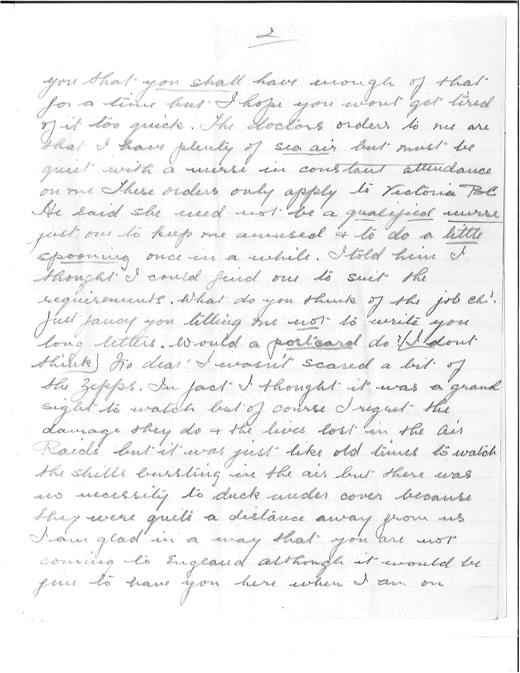 2
you that you shall have enough of that
for a time but I hope you wont get tired
of it too quick. The doctors orders to me are
that I have plenty of sea air but must be
quiet with a nurse in constant attendance
on me These orders only apply to Victoria BC
He said she need not be a qualified nurse
just one to keep me amused & to do a little
spooning once in a while. I told him I
thought I could find one to suit the
requirements. What do you think of the job eh?.
Just fancy you telling me not to write you
long letters. Would a postcard do? (I dont
think) No dear I wasn't scared a bit of
the Zepps. In fact I thought it was a grand
sight to watch but of course I regret the
damage they do & the lives lost in the Air
Raids but it was just like old times to watch
the shells bursting in the air but there was
no necessity to duck under cover because
they were quite a distance away from us
I am glad in a way that you are not
coming to England although it would be
fine to have you here when I am on